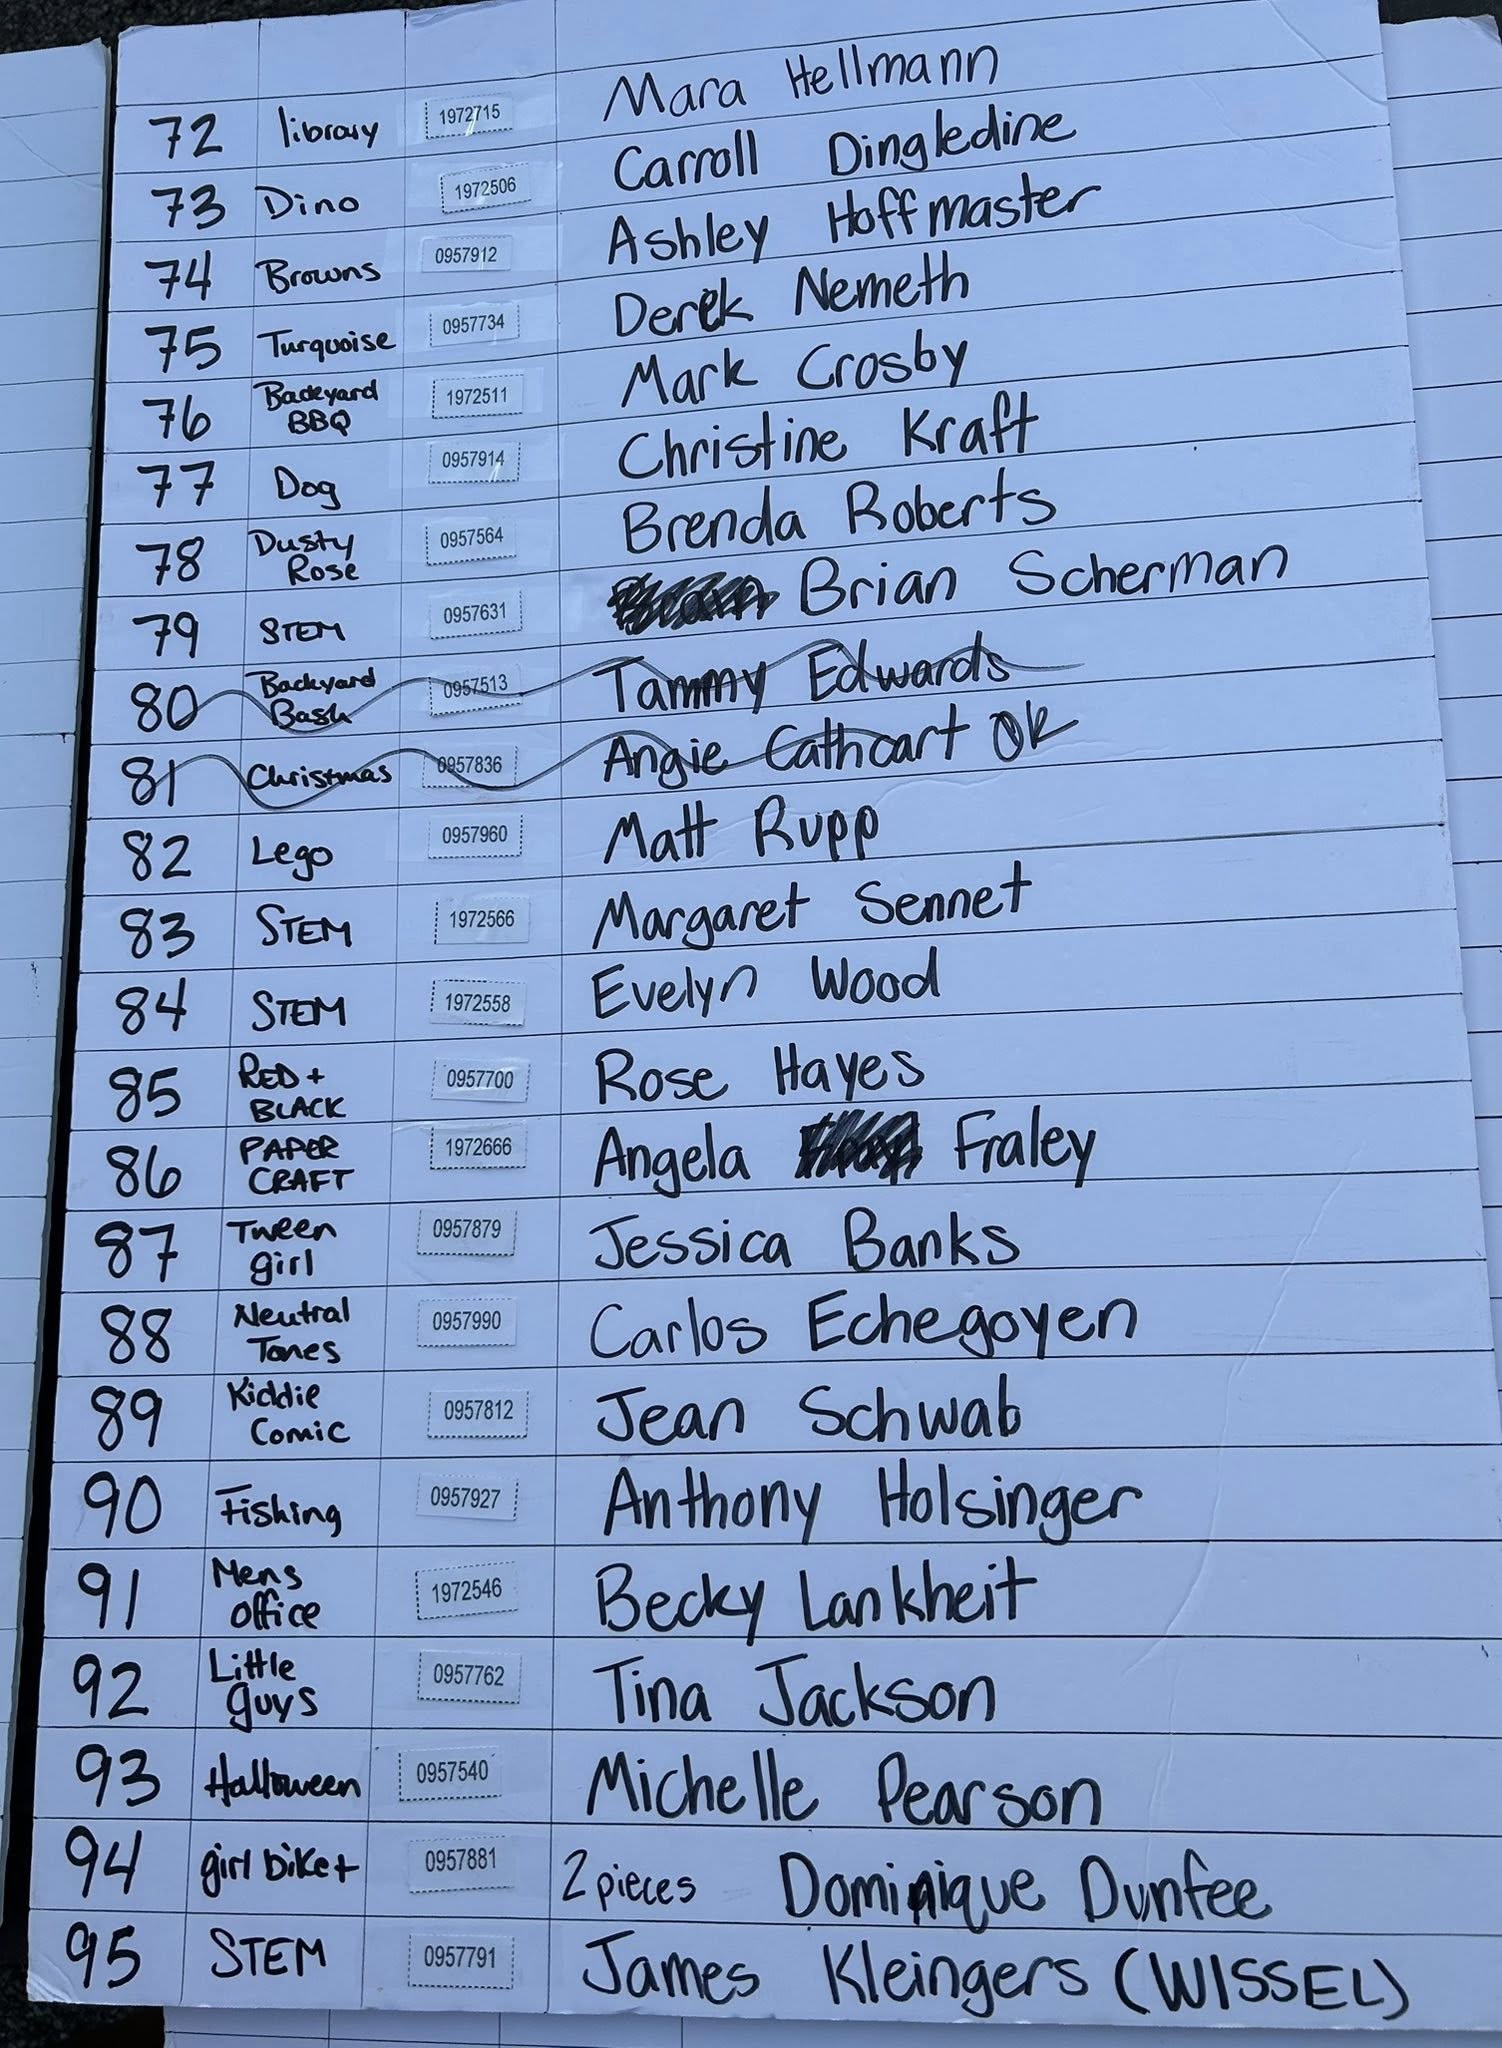 72 library 1972715 Mara Hellmann
73 Dino 1972506 Carroll Dingledine
74 Browns 0957912 Ashley Hoffmaster
75 Turquoise 0957734 Derek Nemeth
76 Backyard BBQ 1972511 Mark Crosby
77 Dog 0957914 Christine Kraft
78 Dusty Rose 0957564 Brenda Roberts
79 STEM 0957631 Brian Scherman
80 Backyard Bash 0957513 Tammy Edwards
81 Christmas 0957836 Angie Cathcart OK
82 Lego 0957960 Matt Rupp
83 STEM 1972566 Margaret Sennet
84 STEM 1972558 Evelyn Wood
85 RED + BLACK 0957700 Rose Hayes
86 PAPER CRAFT 1972666 Angela Fraley
87 Tween girl 0957879 Jessica Banks
88 Neutral Tones 0957990 Carlos Echegoyen
89 Kiddie Comic 0957812 Jean Schwab
90 Fishing 0957927 Anthony Holsinger
91 Mens office 1972546 Becky Lankheit
92 Little guys 0957762 Tina Jackson
93 Halloween 0957540 Michelle Pearson
94 girl bike + 0957881 2 pieces Dominique Dunfee
95 STEM 0957791 James Kleingers (WISSEL)